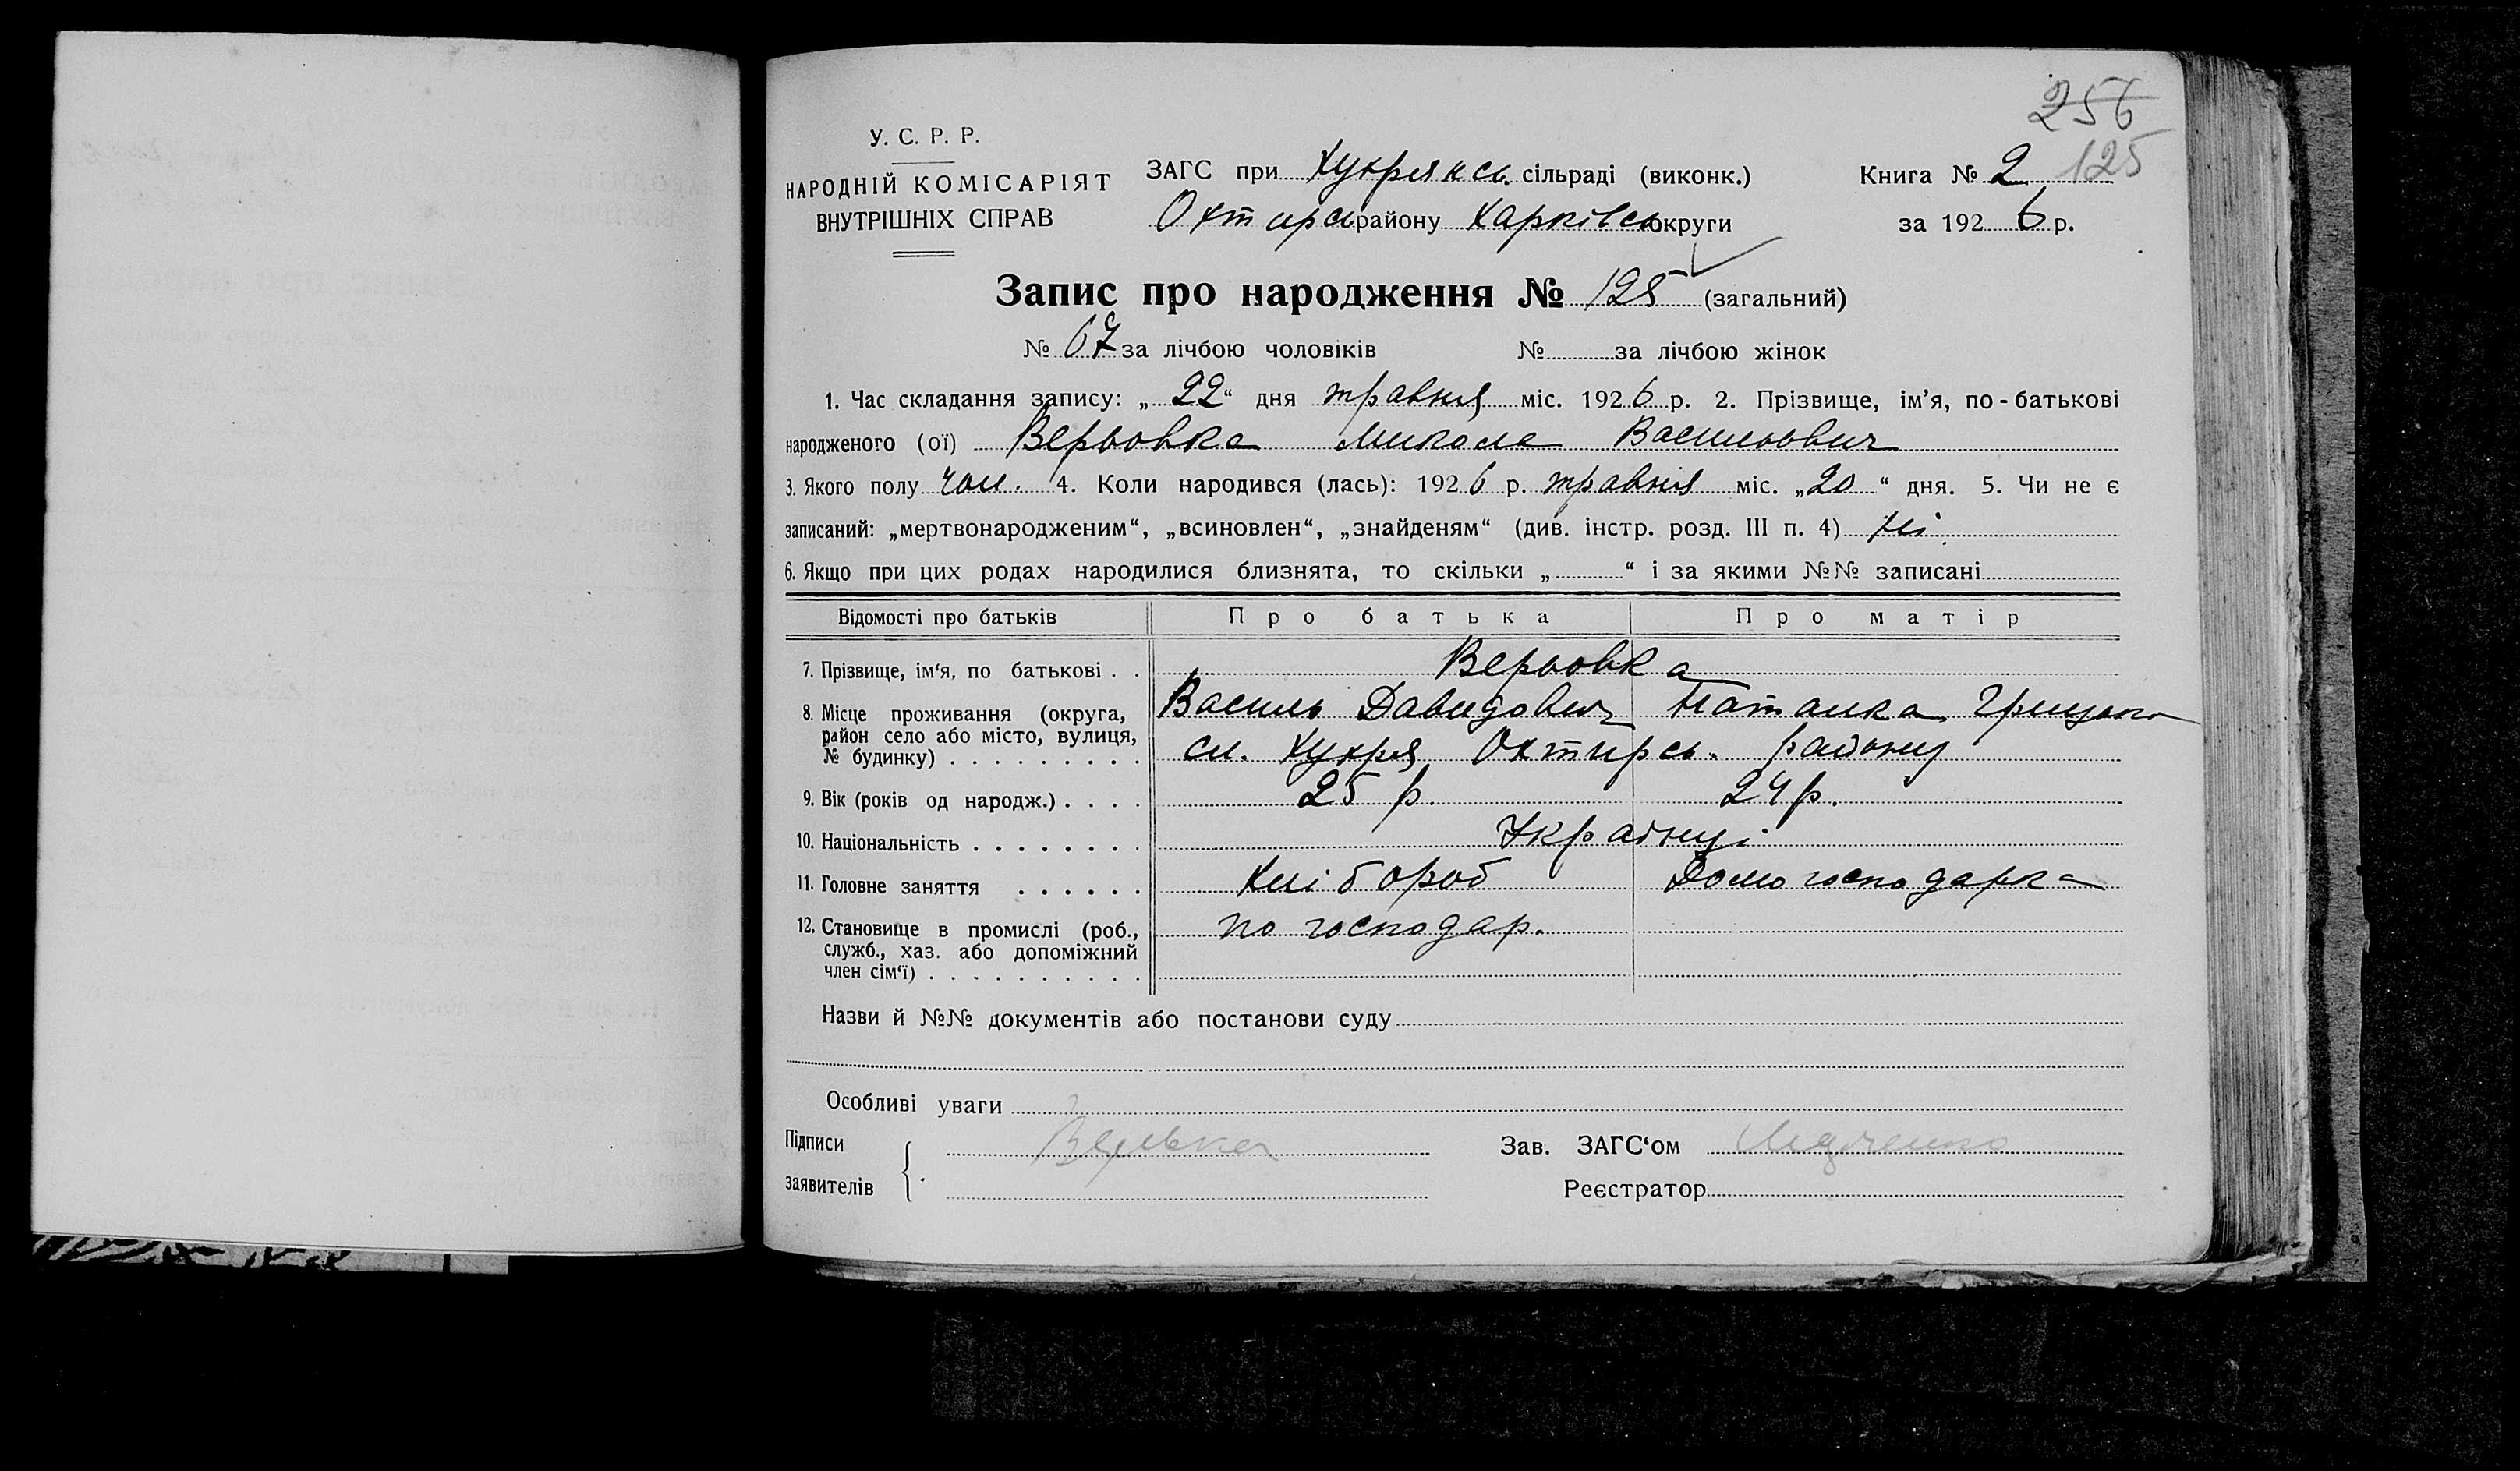 256
125
У. С. Р. Р.
НАРОДНІЙ КОМІСАРІЯТ
ВНУТРІШНІХ СПРАВ
ЗАГС при Хухрянсь. сільраді (виконк.)
Охтирсь району Харківсь округи
Книга № 2
за 1926 р.
Запис про народження № 125 (загальний)
№ 67 за лічбою чоловіків № за лічбою жінок
1. Час складання запису: „22“ дня травня міс. 1926 р. 2. Прізвище, ім’я, по-батькові
народженого (ої) Верьовка Микола Васильович
3. Якого полу чол. 4. Коли народився (лась): 1926 р. травня міс. „20“ дня. 5. Чи не є
записаний: „мертвонародженим“, „всиновлен“, „знайденям“ (див. інстр. розд. III п. 4) Ні.
6. Якщо при цих родах народилися близнята, то скільки „ “ і за якими №№ записані
Відомості про батьків Про батька Про матір
7. Прізвище, ім‘я, по батькові . . Верьовка
Василь Давидович Наталка
8. Місце проживання (округа,
район село або місто, вулиця,
№ будинку) . . . . . . . . . сл. Хухря Охтирсь. району
9. Вік (років од народж.) . . . . 25 р. 24 р.
10. Національність . . . . . . . . Українці
11. Головне заняття . . . . . . Хлібороб Домогосподарка
12. Становище в промислі (роб.,
служб., хаз. або допоміжний
член сім‘ї) . . . . . . . . . . по господар.
Назви й №№ документів або постанови суду
Особливі уваги
Підписи
заявителів
Зав. ЗАГС‘ом
Реєстратор